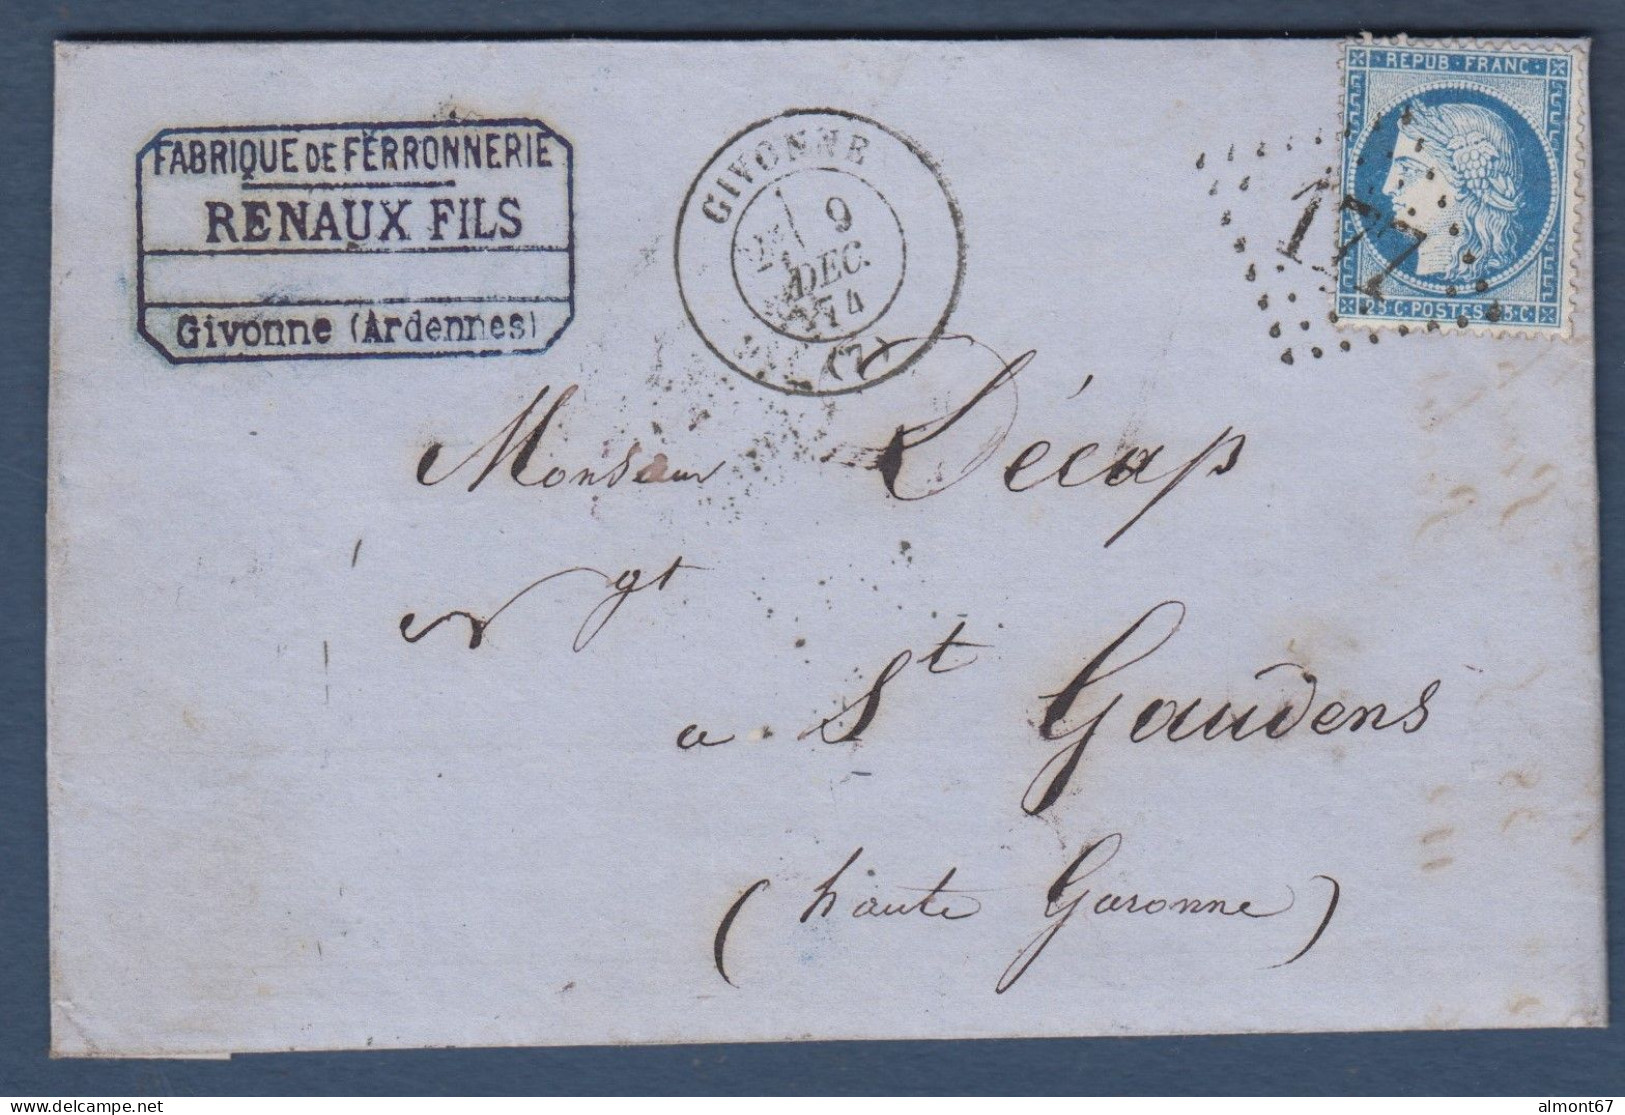 FABRIQUE DE FERRONNERIE
RENAUX FILS
Givonne (Ardennes)
GIVONNE
9
DEC.
74
(7)
REPUB · FRANC ·
25·C·POSTES·25·C·
177
Monsieur Décap
Ngt
a St Gaudens
(haute Garonne)
almont67